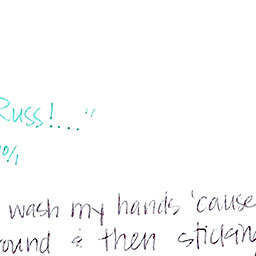 Russ!..."
0%
wash my hands 'cause
round & then sticking